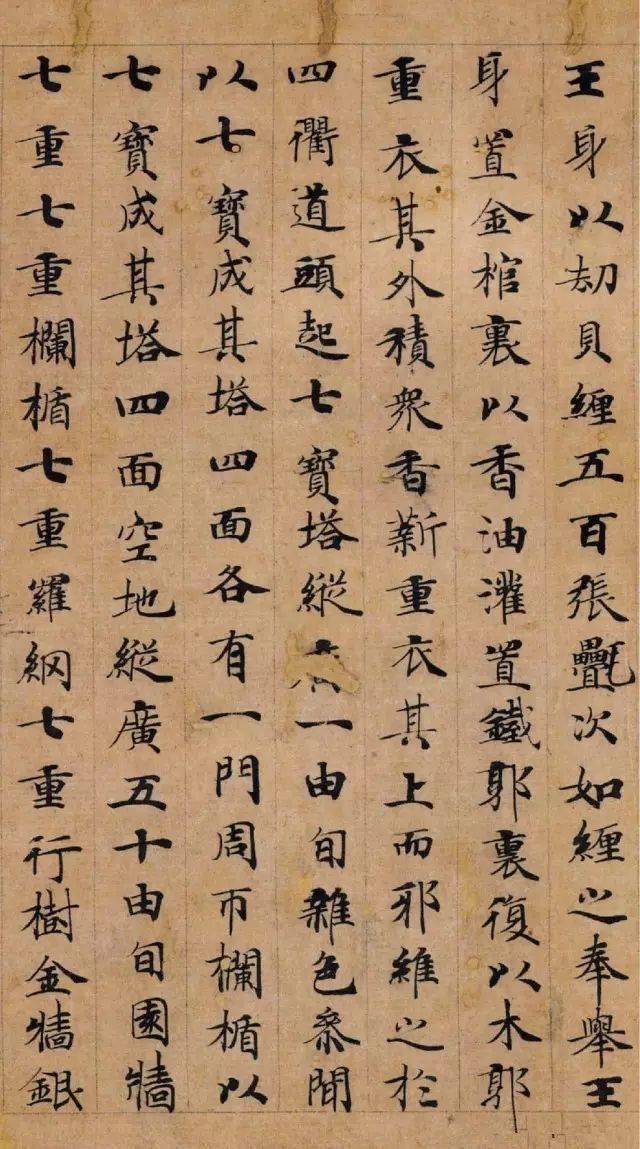 王身以劫貝纏五百張㲲次如纏之奉舉王
身置金棺裏以香油灌置鐵郭裏復以木郭
重衣其外積衆香薪重衣其上而耶維之於
四衢道頭起七寶塔縱一由旬雜色參間
以七寶成其塔四面各有一門周帀欄楯以
七寶成其塔四面空地縱廣五十由旬園牆
七重七重欄楯七重羅網七重行樹金牆銀